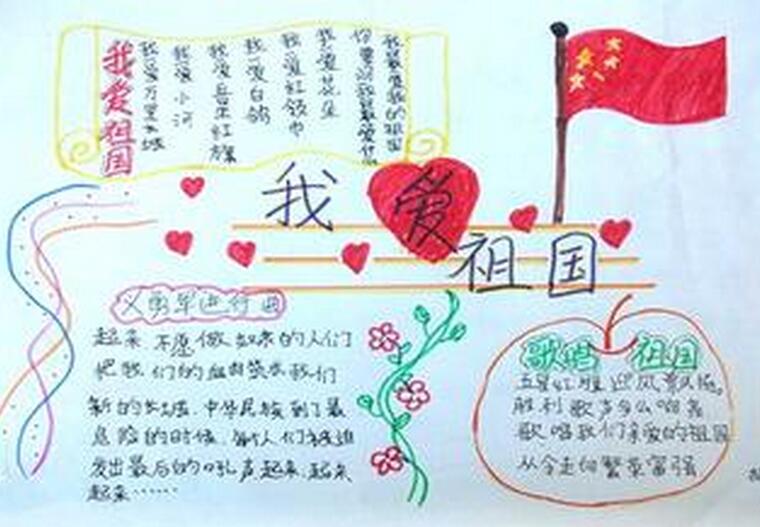 我爱祖国
我爱万里长城
我爱小河
我爱五星红旗
我爱白鸽
我爱红领巾
我爱花朵
你要问我最爱什么
我最爱我的祖国
我爱
祖国
义勇军进行曲
起来 不愿做奴隶的人们
把我们的血肉筑成我们
新的长城 中华民族到了最
危险的时候 人们被迫
发出最后的吼声起来 起来
起来……
歌唱 祖国
五星红旗迎风飘扬。
胜利歌声多么响亮
歌唱我们亲爱的祖国
从今走向繁荣富强